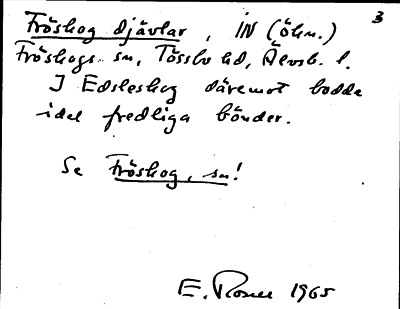 3
Fröskog djävlar, IN (ökn.)
Fröskogs sn, Tössbo hd, Älvsb. l.
I Edsleskog däremot bodde
idel fredliga bönder.
Se Fröskog, sn!
E. 1965